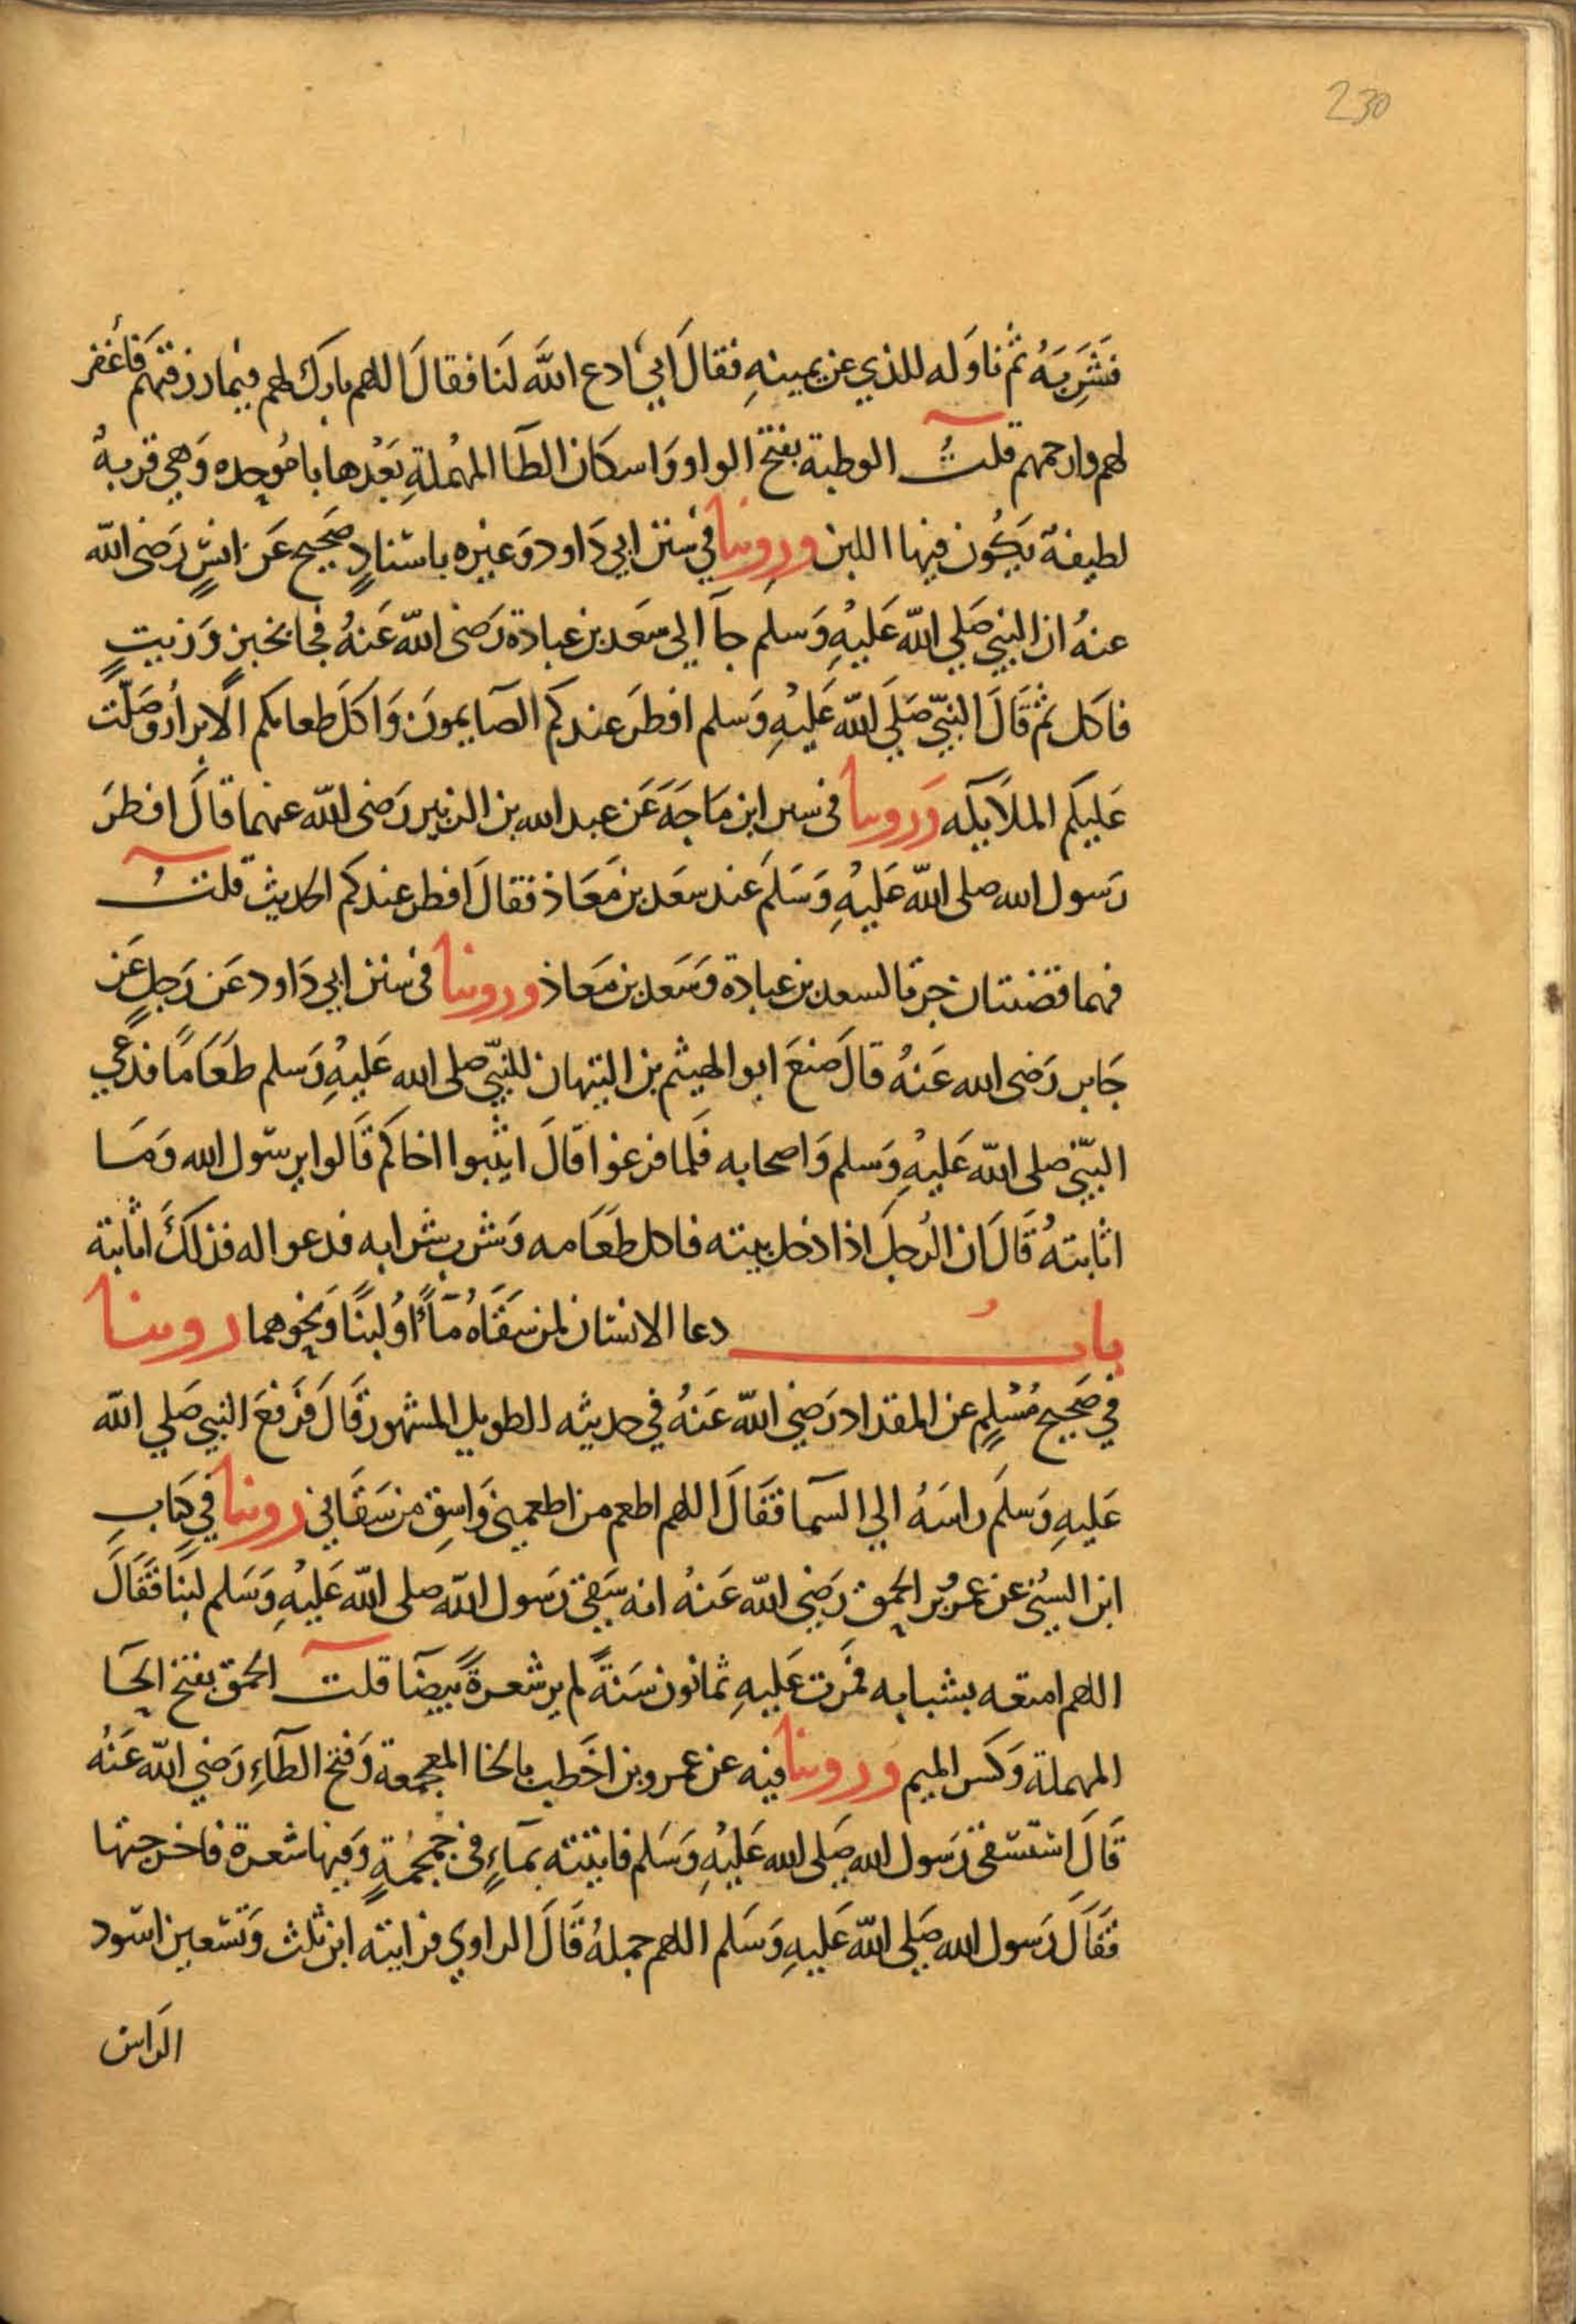 230
فَشَرِبَهُ ثم ناوَله للذي عن يمينهِ فقالَ ابي ادع اللهَ لَنا فقالَ اللهم بارك لهم فيما رزقتهم فاغفر
لهم وارحمهم قلتُ الوطبة بفتح الواو وَاسكان الطآ المهْملةِ بَعْدها با مُوحده وَهي قربةُ
لطيفةٌ يَكُون فيها اللبن وروينا في سُنن ابي دَاود وَغيره باسْنادٍ صَحيح عَن انسٍ رَضى الله
عنهُ ان النبي صَلي الله عَليْهِ وَسلم جآ الى سَعد بن عبادة رَضى الله عَنهُ فجا بخبزٍ وَزيتٍ
فاكل ثم قَالَ النبيّ صَلي الله عَليْهِ وَسلم افطرَ عندكم الصَايمونَ وَاكلَ طعامكم الابرارُ وصَلّت
عَليكم الملاَيكه وَروينا فى سنن ابن مَاجَهَ عَن عبد الله بن الزبير رَضى الله عنهما قالَ افطرَ
رَسول الله صلى الله عَليْهِ وَسَلمَ عند سعَد بن مَعَاذ فقالَ افطر عندكم الحديث قلتُ
فهما قضيتان جرتا لسعد بن عبادة وَسَعد بن مَعاذ وروينا فى سُنن ابي دَاود عَن رَجلٍ عَن
جَابر رَضى الله عَنهُ قالَ صَنعَ ابو الهيثم بن التيهان للنبيّ صلى الله عَليْهِ وَسلم طَعَامًا فدعي
النبيّ صلى الله عَليْهِ وَسلم وَاصحابه فَلما فرغوا قَالَ اثيبوا اخاكم قَالوا يرسُول الله وَمَا
اثابتهُ قَالَ ان الرجلَ اذا دخل بيته فاكل طعَامه وَشرب شرابه فدعوا له فذلكَ اثابته
بابُ دعا الانسَان لمن سَقاهُ مآءً اوْ لبنًا وَنحوهما روينا
في صَحيح مُسْلِمٍ عن المقداد رَضي الله عَنهُ في حديثه الطويل المشهور قَالَ فَرَفعَ النبي صَلي الله
عَليهِ وَسلَم راسَهُ الي السَما فقَالَ اللهم اطعم من اطعمنى وَاسِقِ من سَقَاني روينا في كِتابِ
ابن السُني عن عمرُو بن الحمق رَضي الله عَنهُ انه سَقي رَسول الله صلى الله عَليْهِ وَسَلم لبنا فقَالَ
اللهم امتعه بشبابه فمَرت عَليهِ ثمانون سَنةً لم ير شعرةً بَيضَا قلت الحمق بفتح الحَا
المهملة وَكسر الميم وَروينا فيه عن عمرو بن اخَطب بالخا المعجمة وَفتح الطآءِ رَضي الله عَنْهُ
قَالَ اسْتسْقى رَسول الله صَلى الله عَليْهِ وَسَلم فاتيته بمآءٍ فى جُمجُمةٍ وَفيها شعرة فاخرجتها
فقَالَ رَسول الله صَلي الله عَليهِ وَسَلم اللهم جملهُ قَالَ الراوي فرايته ابن ثلث وَتسْعين اسْود
الرَاس